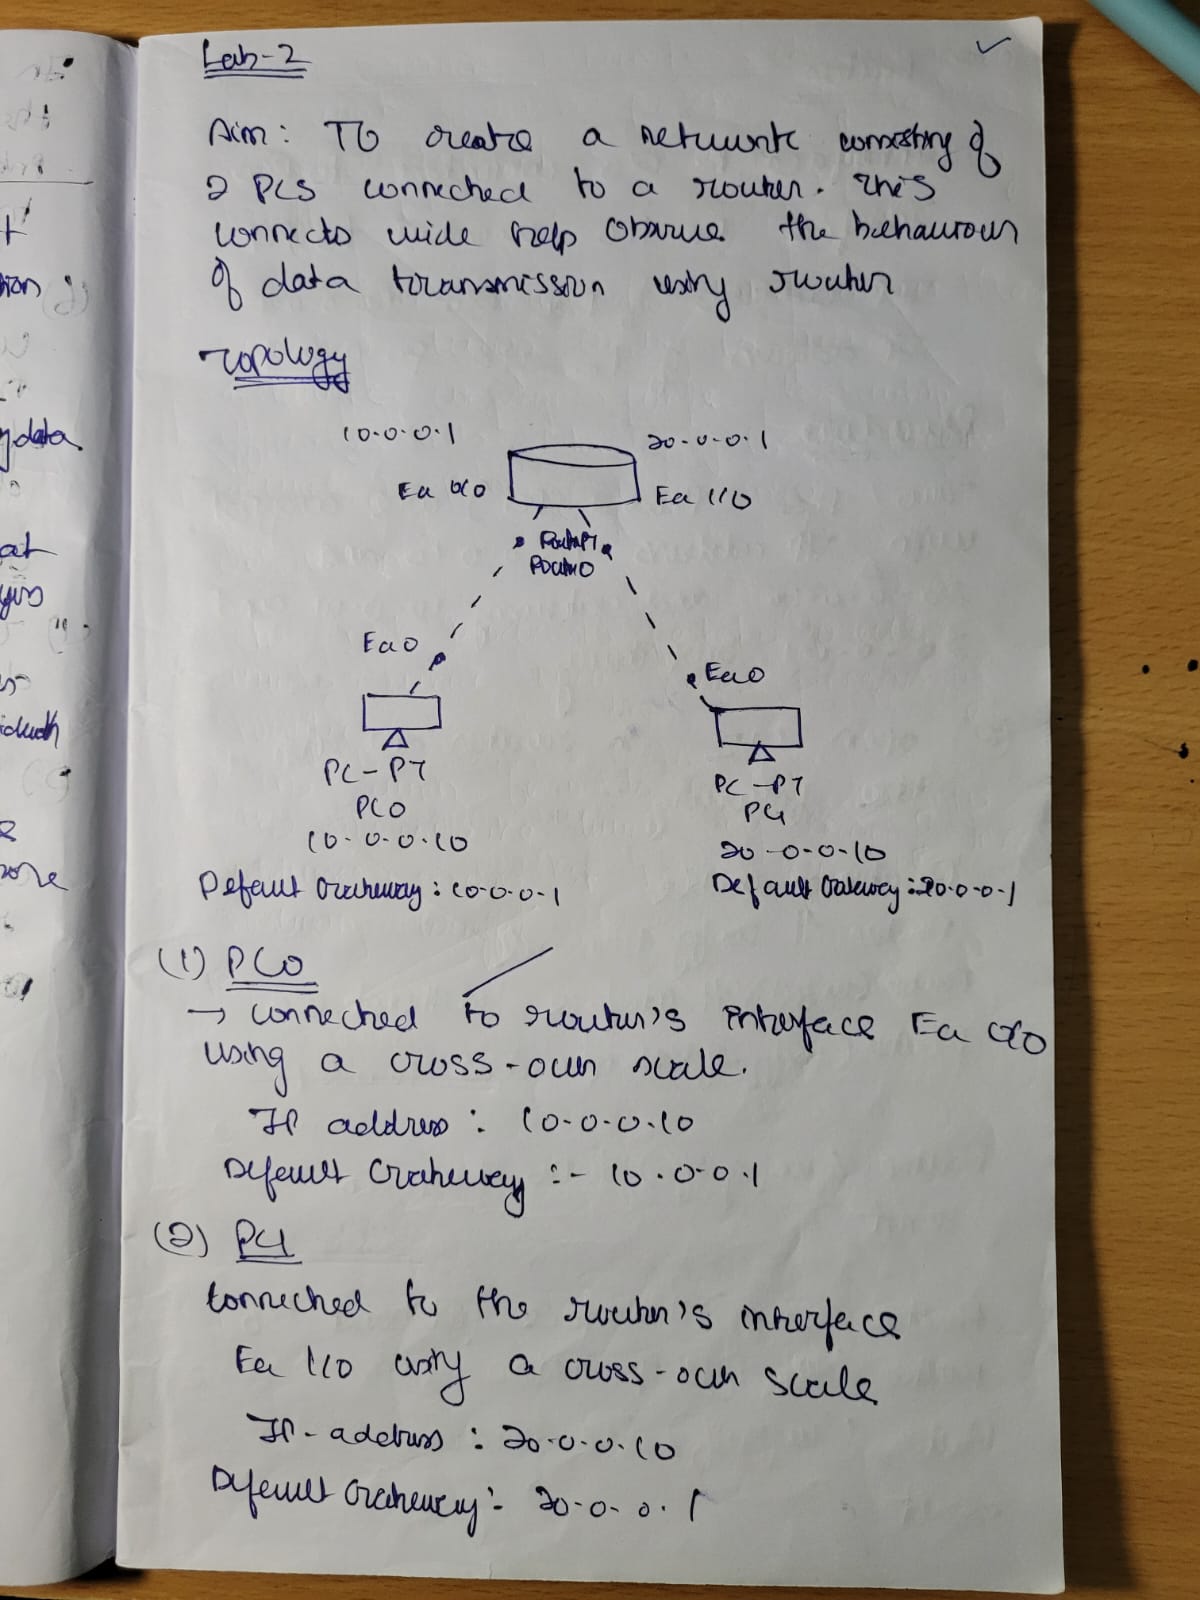 Lab-2
Aim: To create a network consisting of
2 PCS connected to a router. This
connects wide help observe the behaviour
of data transmission using router
Topology
10.0.0.1
20.0.0.1
Fa 0/0
Fa 1/0
Router0
Fa0
Fa0
PC-PT
PC0
10.0.0.10
Default Gateway: 10.0.0.1
PC-PT
PC1
20.0.0.10
Default Gateway: 20.0.0.1
(1) PC0
→ connected to router's interface Fa 0/0
using a cross-over scale.
IP address: 10.0.0.10
Default Gateway :- 10.0.0.1
(2) PC1
Connected to the router's interface
Fa 1/0 using a cross-over scale
IP-address: 20.0.0.10
Default Gateway:- 20.0.0.1
data
at